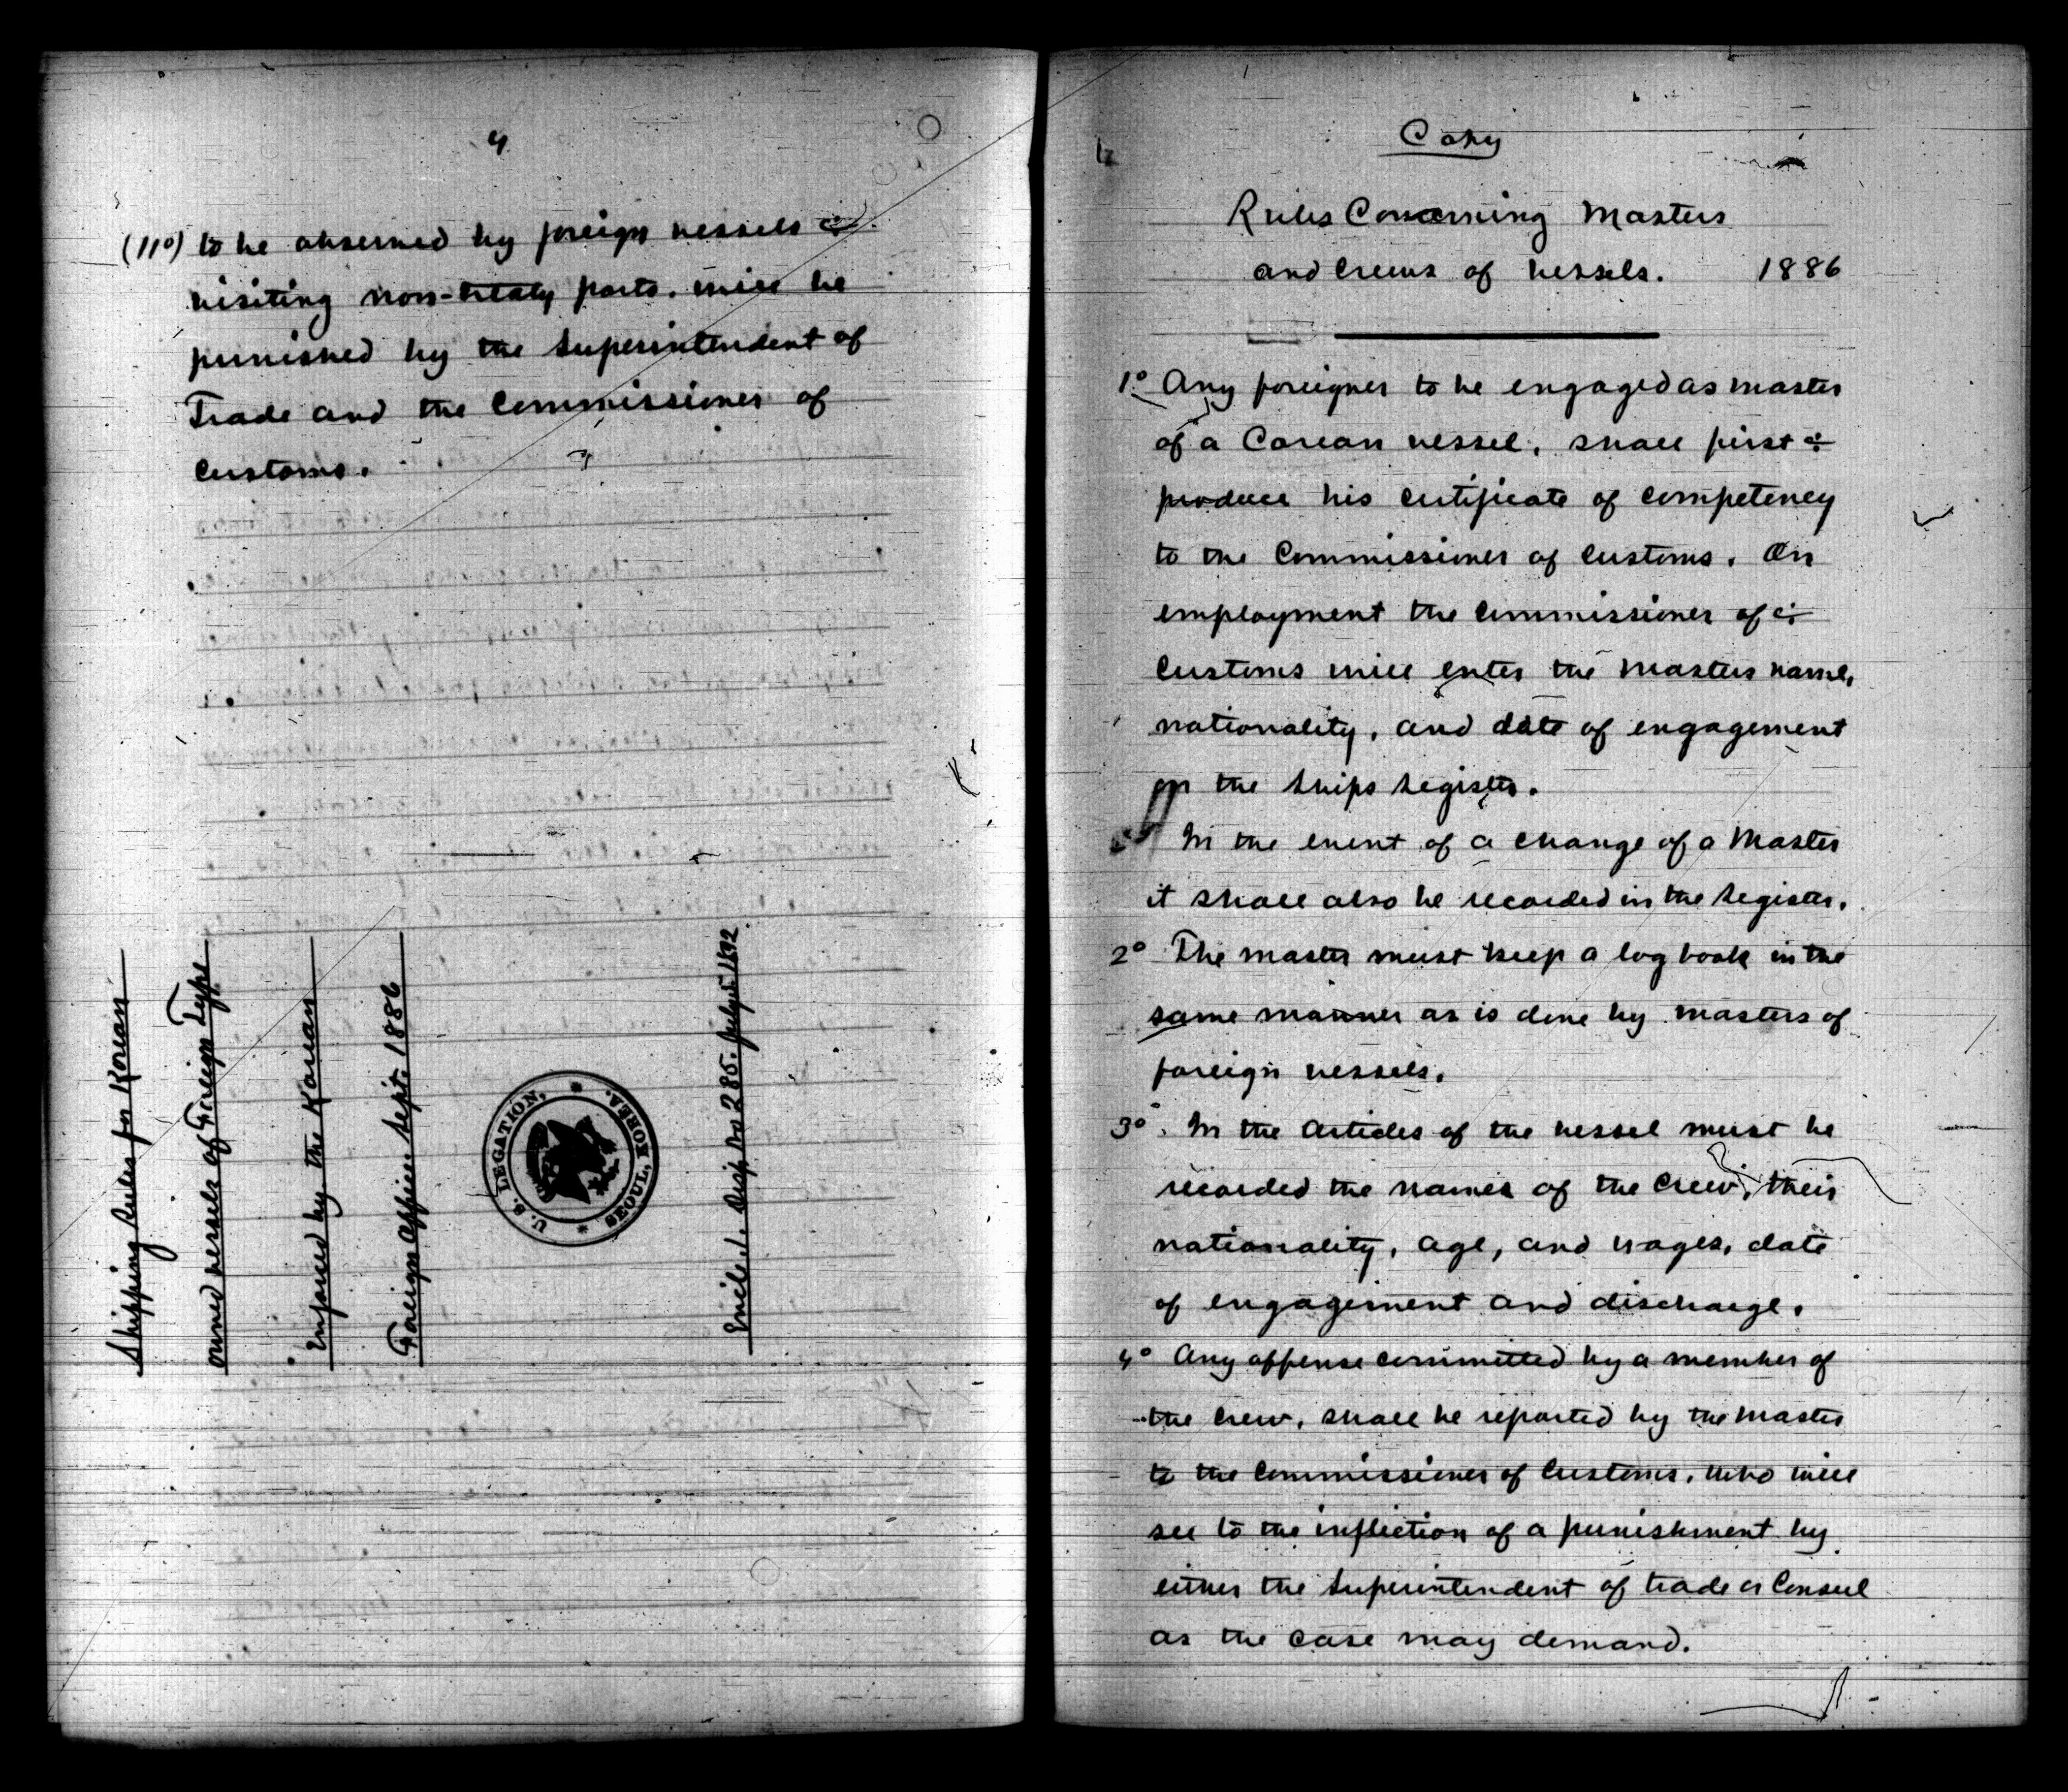 4
(11º) to be observed by foreign vessels
visiting non-treaty ports, will be
punished by the Superintendent of
Trade and the Commissioner of
Customs.
Shipping Rules for Korean
owned vessels of Foreign Type
Enforced by the Korean
Foreign Office. Sept. 1886
U. S. LEGATION,
SEOUL, KOREA.
Encl. 1. Disp. No 285. July 5 1892
Copy
Rules Concerning Masters
and Crews of Vessels. 1886
1º Any foreigner to be engaged as master
of a Corean vessel, shall first
produce his certificate of competency
to the Commissioner of Customs. On
employment the Commissioner of
Customs will enter the masters name,
nationality, and date of engagement
on the Ships Register.
In the event of a change of a Master
it shall also be recorded in the Register.
2º The master must keep a log book in the
same manner as is done by masters of
foreign vessels.
3º. In the Articles of the vessel must be
recorded the names of the Crew, their
nationality, age, and wages, date
of engagement and discharge.
4º Any offense committed by a member of
the Crew, shall be reported by the Master
to the Commissioner of Customs, who will
see to the infliction of a punishment by
either the Superintendent of trade or Consul
as the case may demand.